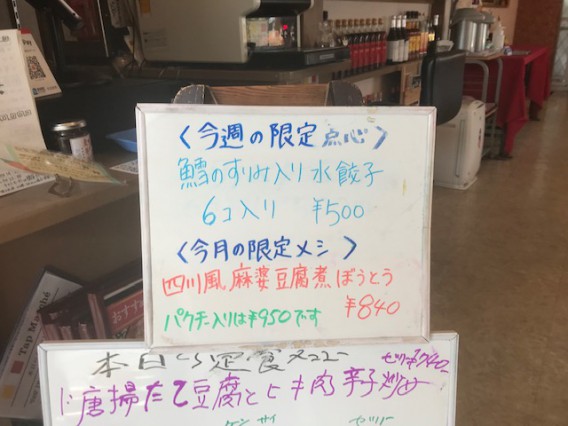 <今週の限定 点心>
鱈のすりみ入り 水餃子
6コ入り ¥500
<今月の限定メシ>
四川風 麻婆豆腐煮ぼうとう
¥840
パクチー入りは¥950です
本日の定食メニュー
唐揚げ
豆腐とヒキ肉
炒め
Tap Marché
おすすめ
Pay